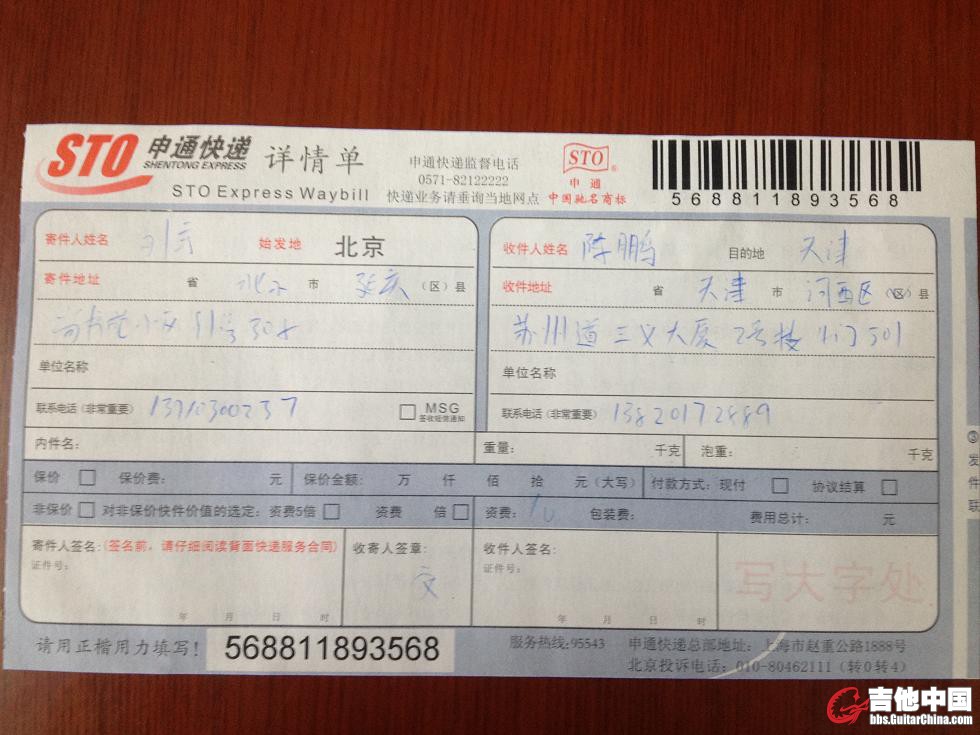 STO 申通快递 SHENTONG EXPRESS 详情单
STO Express Waybill
申通快递监督电话
0571-82122222
快递业务请垂询当地网点
STO
申通
中国驰名商标
568811893568
寄件人姓名 始发地 北京
寄件地址 省 北京 市 延庆 (区)县
单位名称
联系电话(非常重要) 13710300237
MSG
签收短信通知
收件人姓名 陈鹏 目的地 天津
收件地址 省 天津 市 河西区 (区)县
苏州道三义大厦2号楼1门501
单位名称
联系电话(非常重要) 13820172889
内件名: 重量: 千克 泡重: 千克
保价 保价费: 元 保价金额: 万 仟 佰 拾 元(大写) 付款方式:现付 协议结算
非保价 对非保价快件价值的选定:资费5倍 资费 倍 资费: 10 包装费: 费用总计: 元
寄件人签名:(签名前,请仔细阅读背面快递服务合同)
证件号:
年 月 日 时
收寄人签章:
文
收件人签名:
证件号:
年 月 日 时
写大字处
请用正楷用力填写! 568811893568
服务热线:95543 申通快递总部地址:上海市赵重公路1888号
北京投诉电话:010-80462111(转0转4)
③
发
件
联
吉他中国
bbs.GuitarChina.com